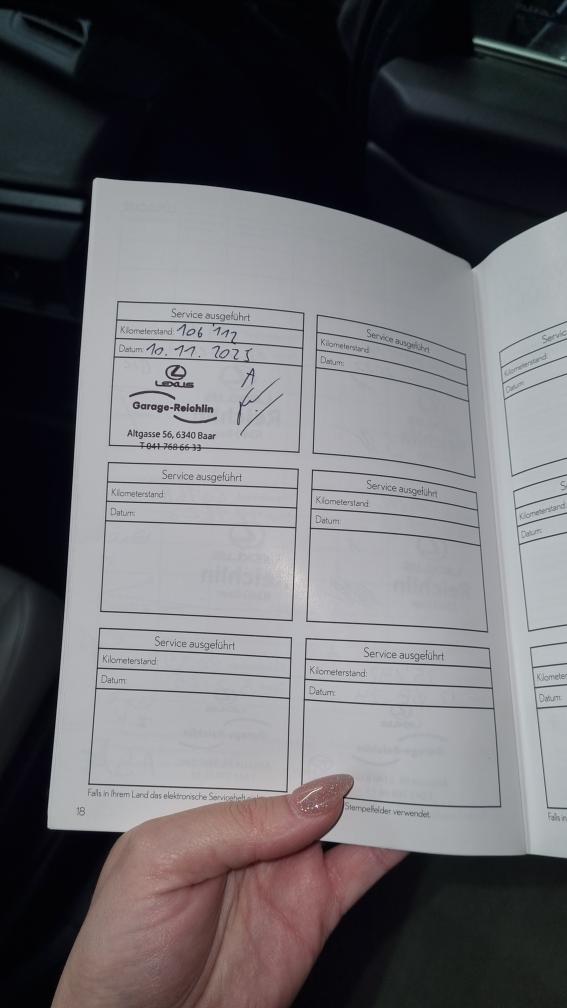 Service ausgeführt
Kilometerstand: 106'112
Datum: 10.11.2025
A
LEXUS
Garage-Reichlin
Altgasse 56, 6340 Baar
T 041 768 66 33
Service ausgeführt
Kilometerstand:
Datum:
Service ausgeführt
Kilometerstand:
Datum:
Service ausgeführt
Kilometerstand:
Datum:
Service ausgeführt
Kilometerstand:
Datum:
Service ausgeführt
Kilometerstand:
Datum:
Falls in Ihrem Land das elektronische Serviceheft Stempelfelder verwendet.
18
Kilometerstand:
Datum:
Kilometerstand:
Datum:
Datum:
Falls in